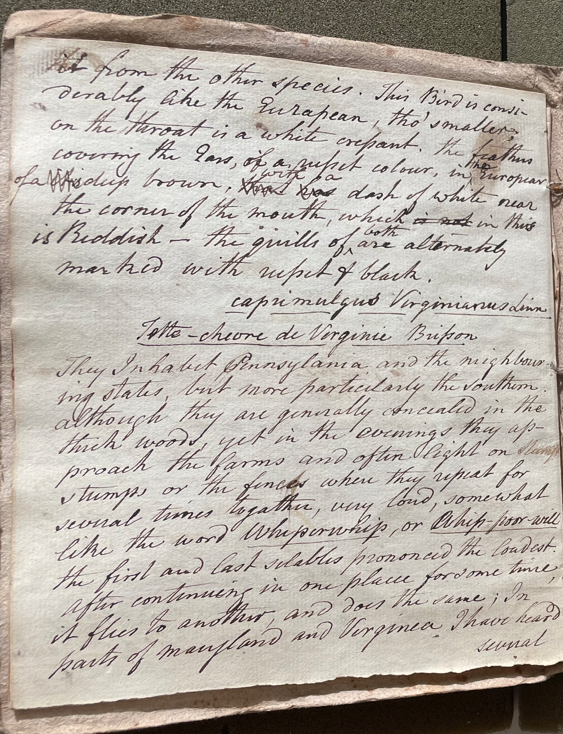 it from the other species. This Bird is consi-
derably like the European, tho' smaller;
on the throat is a white crepsant. the feathers
covering the Ears, of a rupset colour, in the European
of a deep brown, with a dash of white near
the corner of the mouth, which in this
is Reddish — the quills of both are alternately
marked with rupset & black.
caprimulgus Virginianus Linn
Tette-chevre de Virginie Brifson
They Inhabit Pennsylvania and the neighbour-
ing states, but more particularly the southern.
although they are generally concealed in the
thick woods, yet in the evenings they ap-
proach the farms and often light on
stumps or the fences where they repeat for
several times togather, very loud, somewhat
like the word Whiperwhip, or Whip-poor-will
the first and last selables prononced the loudest.
after continuing in one placee for some time
it flies to another, and does the same; In
parts of maryland and Virginea I have heard
several